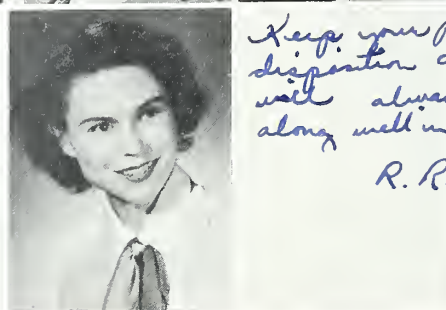 Keep your p
disposition a
will alway
along well w
R. R